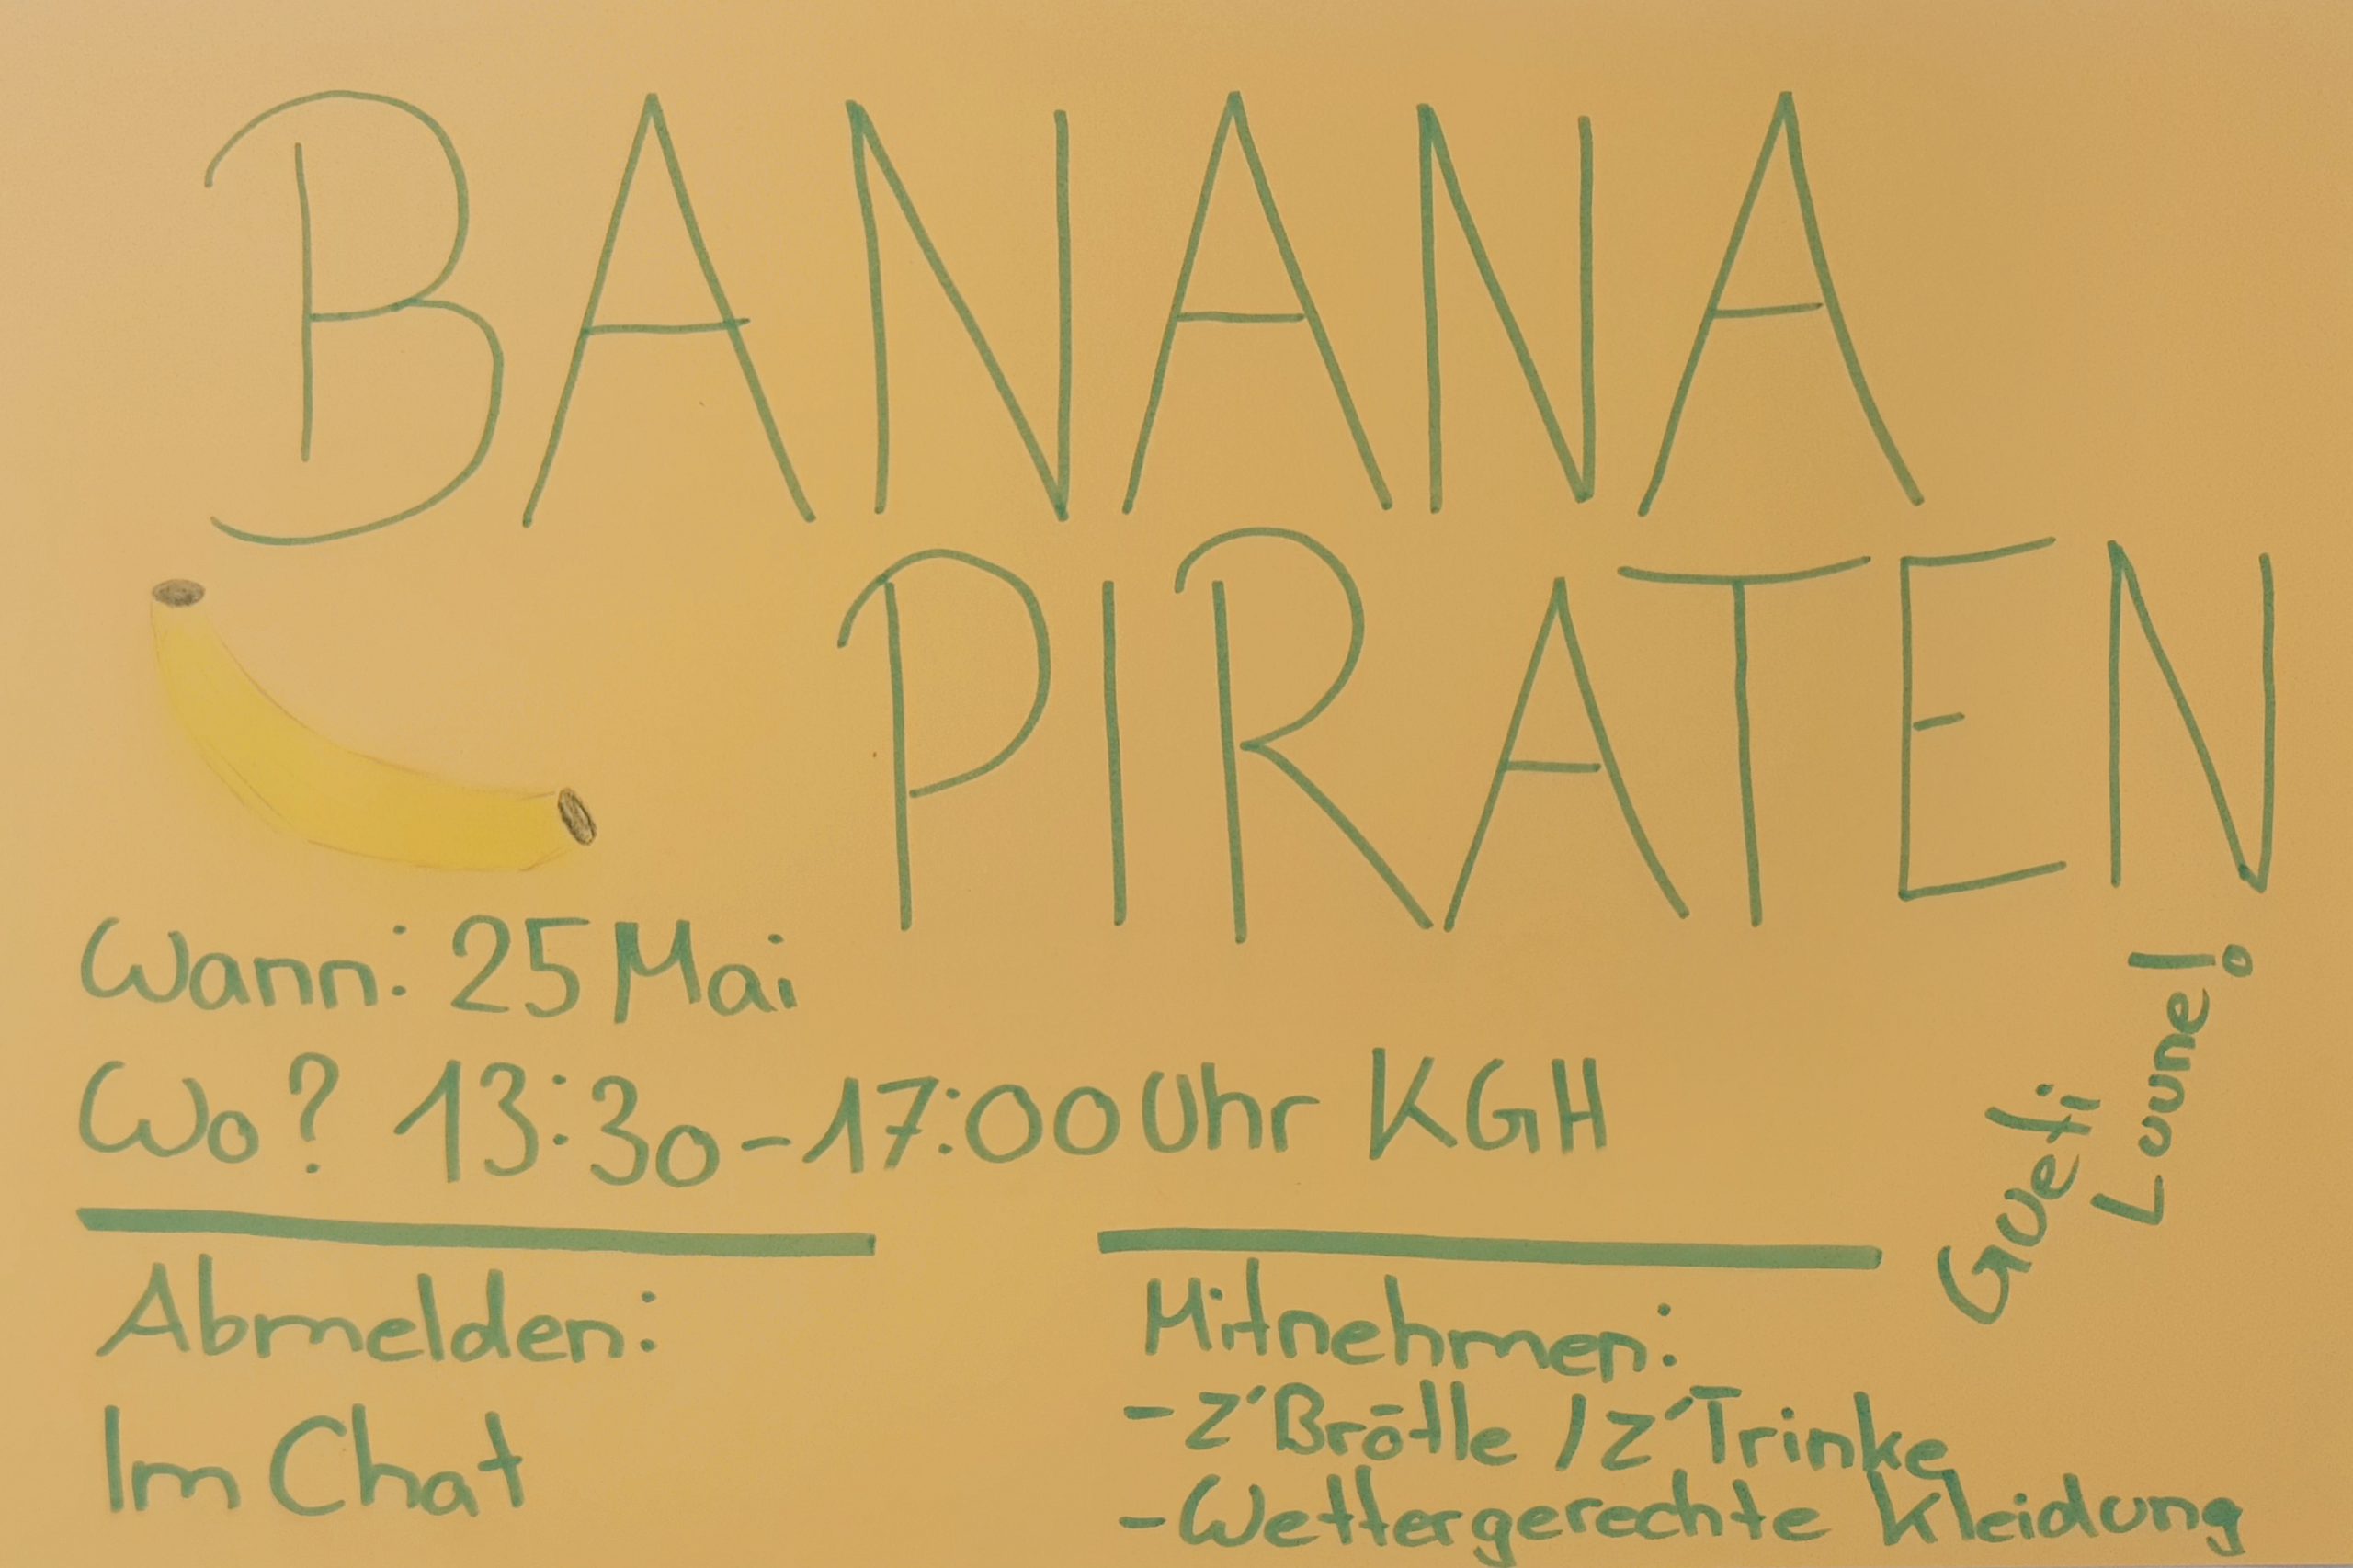 BANANA
PIRATEN
Wann: 25 Mai
Wo? 13:30-17:00 Uhr KGH
Gueti
Loune!
Abmelden:
Im Chat
Mitnehmen:
- Z'Brötle / Z'Trinke
- Wettergerechte Kleidung